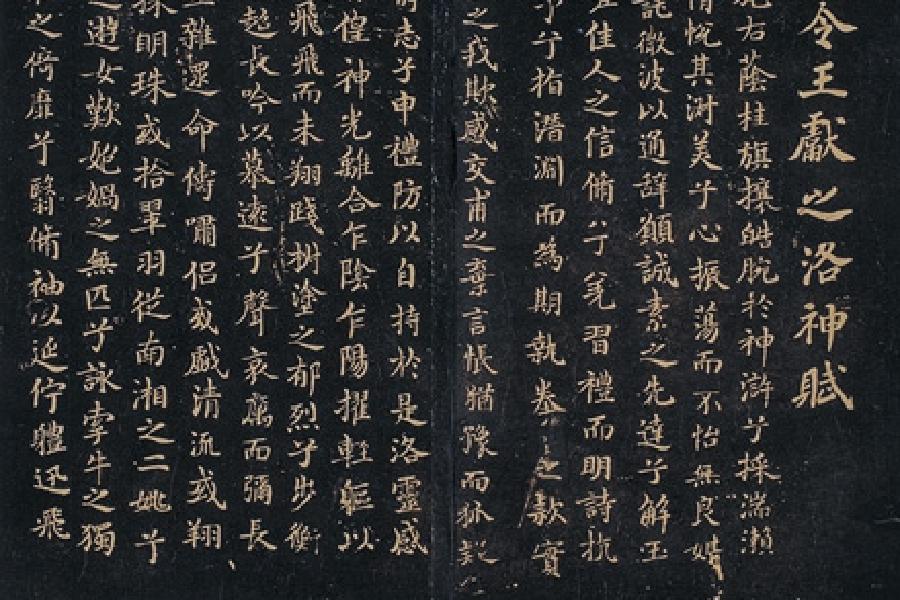 令王獻之洛神賦
右蔭桂旗攘皓腕於神滸兮採湍瀨
悅其淑美兮心振蕩而不怡無良媒
託微波以通辭願誠素之先達兮解玉
佳人之信脩兮羌習禮而明詩抗
兮指潛淵而爲期執眷之款實
之我欺感交甫之棄言悵猶豫而狐疑
志兮申禮防以自持於是洛靈感
徨神光離合乍陰乍陽擢輕軀以
飛飛而未翔踐椒塗之郁烈兮步衡
超長吟以慕遠兮聲哀厲而彌長
雜遝命儔嘯侶或戲清流或翔
採明珠或拾翠羽從南湘之二姚兮
遊女歎妑媧之無匹兮詠牽牛之獨
之倚靡兮翳脩袖以延佇體迅飛